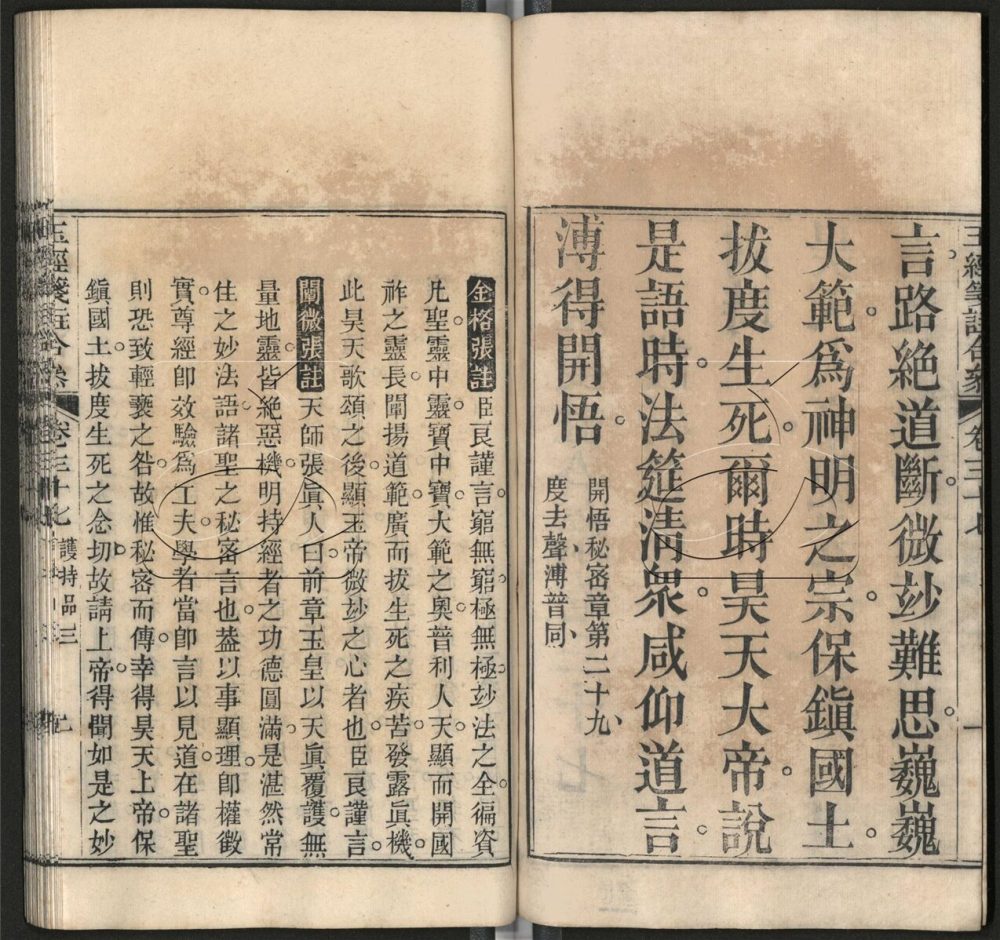 言路絶道斷微玅難思巍巍
大範爲神明之宗保鎭國土
拔度生死爾時昊天大帝說
是語時法筵清衆咸仰道言
溥得開悟
開悟秘密章第二十九
度去聲溥普同
金格張註 臣良謹言窮無窮極無極玅法之全徧資
凡聖靈中靈寶中寶大範之奧普利人天顯而開國
祚之靈長闡揚道範廣而拔生死之疾苦發露眞機
此昊天歌頌之後顯玉帝微玅之心者也臣良謹言
闡微張註 天師張眞人曰前章玉皇以天眞覆護無
量地靈皆絶惡機明持經者之功德圓滿是湛然常
住之妙法語諸聖之秘密言也葢以事顯理卽權徵
實尊經卽效驗爲工夫學者當卽言以見道在諸聖
則恐致輕褻之咎故惟秘密而傳幸得昊天上帝保
鎭國土拔度生死之念切故請上帝得聞如是之妙
玉經箋註合叅 卷三十七 護持品三